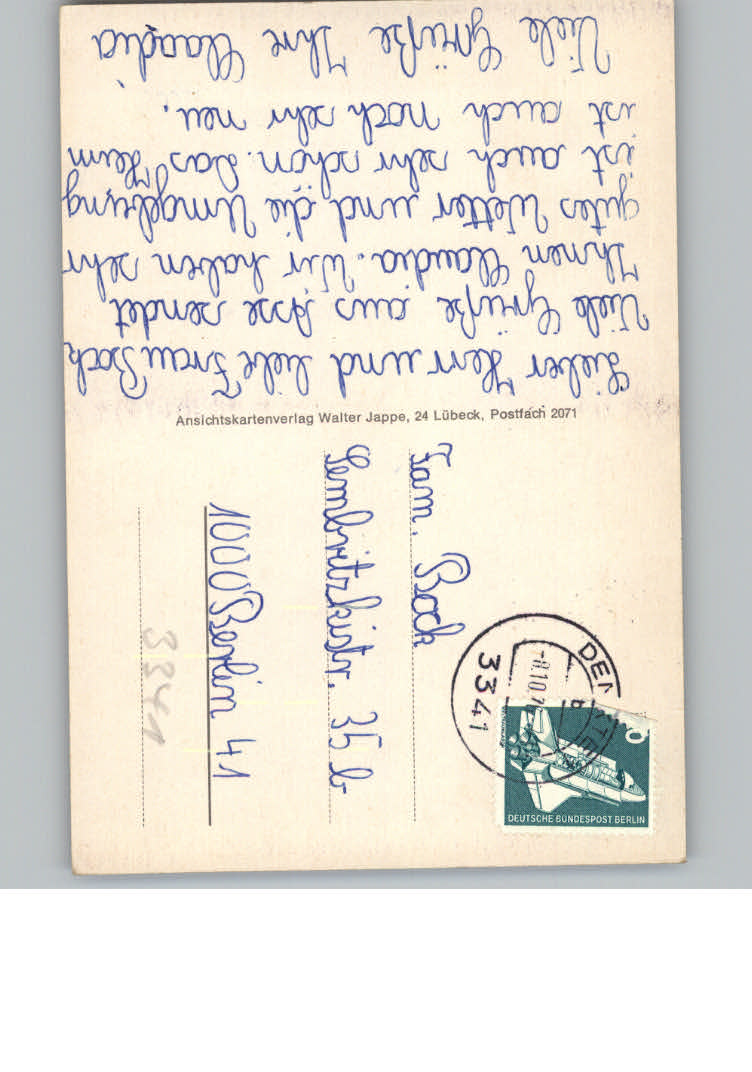 Lieber Herr und liebe Frau Bock
Viele Grüße aus Asse sendet
Ihnen Claudia. Wir haben sehr
gutes Wetter und die Umgebung
ist auch sehr schön. Das Heim
ist auch noch sehr neu.
Viele Grüße Ihre Claudia
Ansichtskartenverlag Walter Jappe, 24 Lübeck, Postfach 2071
Fam. Bock
Lembritzkistr. 35 b
1000 Berlin 41
3341
3341
-8.10.7
DEUTSCHE BUNDESPOST BERLIN